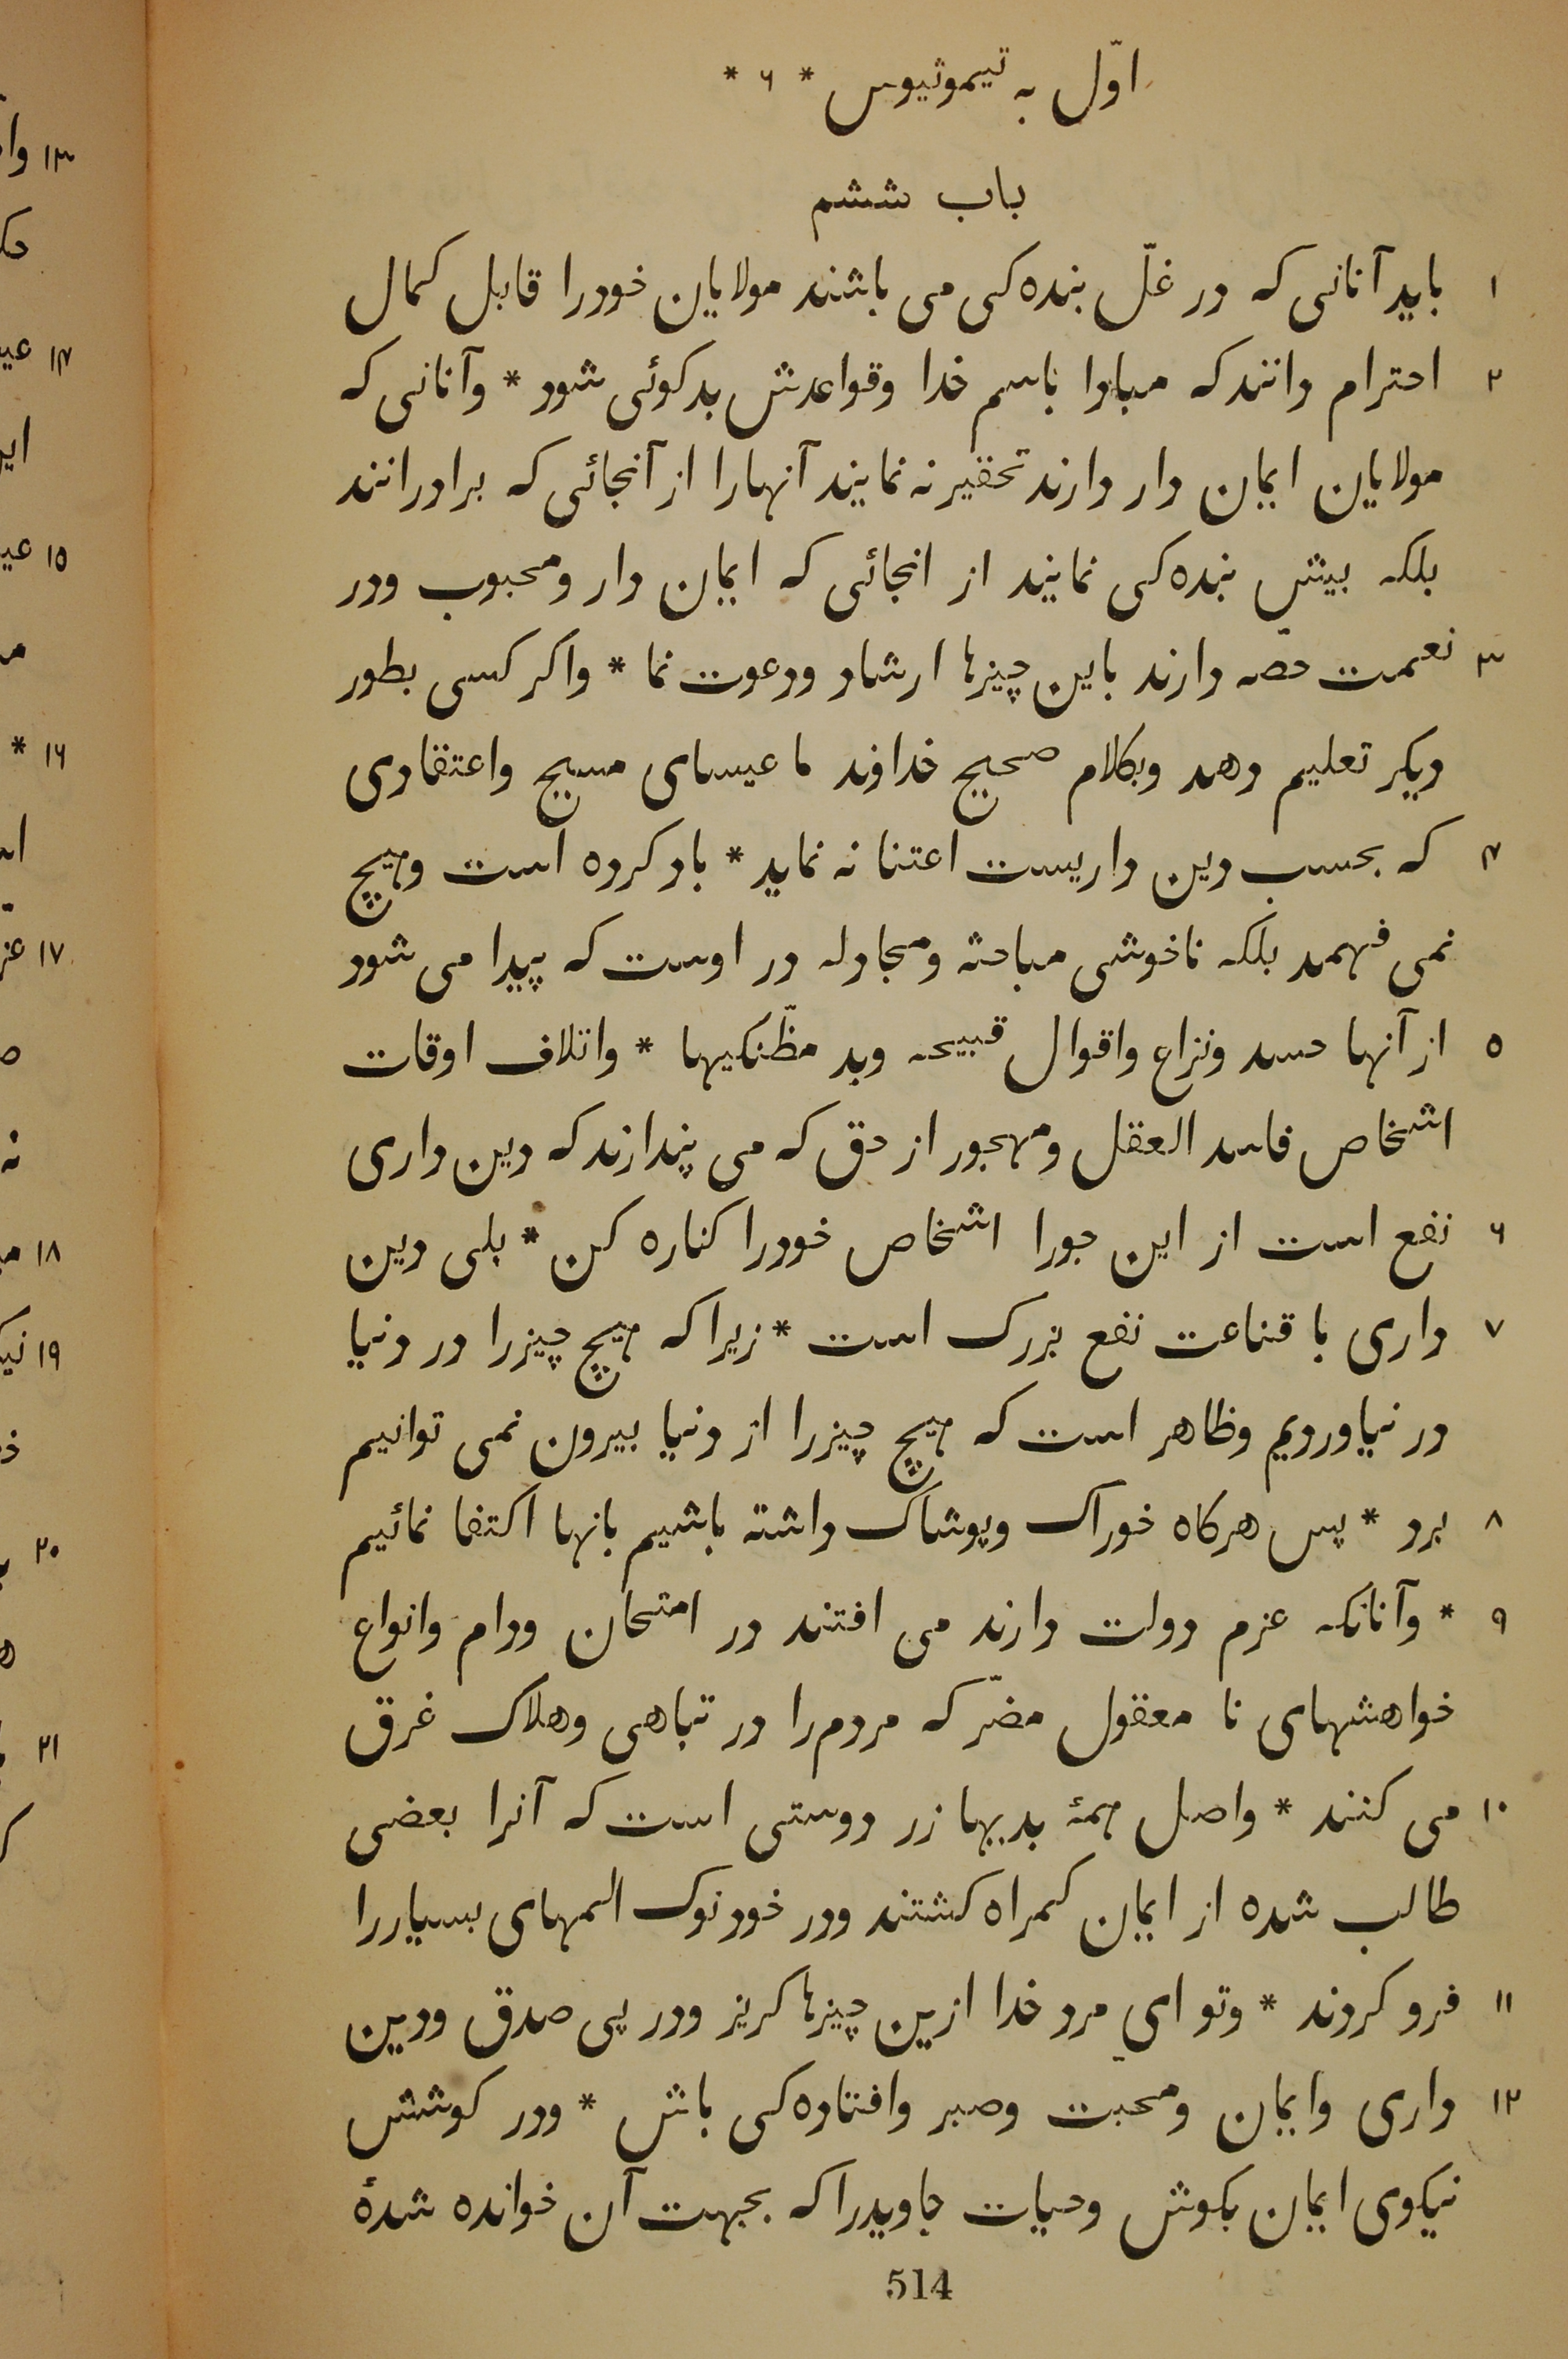 اوّل به تیموثیوس * ۶ *
باب ششم
۱ باید آنانی که در غلّ بنده کی می باشند مولایان خودرا قابل کمال
۲ احترام دانند که مبادا باسم خدا وقواعدش بدکوئی شود * وآنانی که
مولایان ایمان دار دارند تحقیر نه نمایند آنهارا از آنجائی که برادرانند
بلکه بیش بنده کی نمایند از انجائی که ایمان دار ومحبوب ودر
۳ نعمت حصّه دارند باین چیزها ارشاد ودعوت نما * واکر کسی بطور
دیکر تعلیم دهد وبکلام صحیح خداوند ما عیسای مسیح واعتقادی
۴ که بحسب دین داریست اعتنا نه نماید * باد کرده است وهیچ
نمی فهمد بلکه ناخوشی مباحثه ومجادله در اوست که پیدا می شود
۵ از آنها حسد ونزاع واقوال قبیحه وبد مظّنکیها * واتلاف اوقات
اشخاص فاسد العقل ومهجور از حق که می پندازند که دین داری
۶ نفع است از این جورا اشخاص خودرا کناره کن * بلی دین
۷ داری با قناعت نفع بزرک است * زیرا که هیچ چیزرا در دنیا
در نیاوردیم وظاهر است که هیچ چیزرا از دنیا بیرون نمی توانیم
۸ برد * پس هرکاه خوراک وپوشاک داشته باشیم بانها اکتفا نمائیم
۹ * وآنانکه عزم دولت دارند می افتند در امتحان ودام وانواع
خواهشهای نا معقول مضرّ که مردم را در تباهی وهلاک غرق
۱۰ می کنند * واصل همهٔ بدیها زر دوستی است که آنرا بعضی
طالب شده از ایمان کمراه کشتند ودر خود نوک المهای بسیاررا
۱۱ فرو کردند * وتو ای مرد خدا ازین چیزها کریز ودر پی صدق ودین
۱۲ داری وایمان ومحبت وصبر وافتاده کی باش * ودر کوشش
نیکوی ایمان بکوش وحیات جاویدرا که بجهت آن خوانده شدهٔ
514